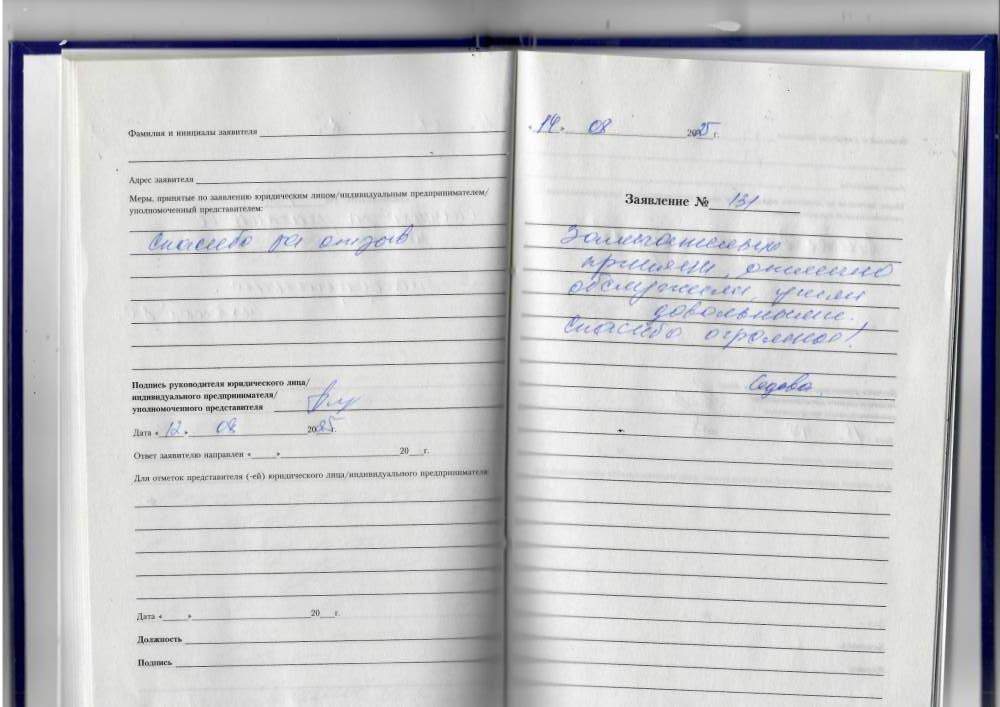 Фамилия и инициалы заявителя
Адрес заявителя
Меры, принятые по заявлению юридическим лицом/индивидуальным предпринимателем/
уполномоченный представителем:
Спасибо за отзыв
Подпись руководителя юридического лица/
индивидуального предпринимателя/
уполномоченного представителя
Дата «12» 08 2025г.
Ответ заявителю направлен « » 20 г.
Для отметок представителя (-ей) юридического лица/индивидуального предпринимателя
Дата « » 20 г.
Должность
Подпись
«14» 08 2025г.
Заявление № 131
Замечательно
приняли, отлично
обслужили, ушли
довольными.
Спасибо огромное!
Седова.